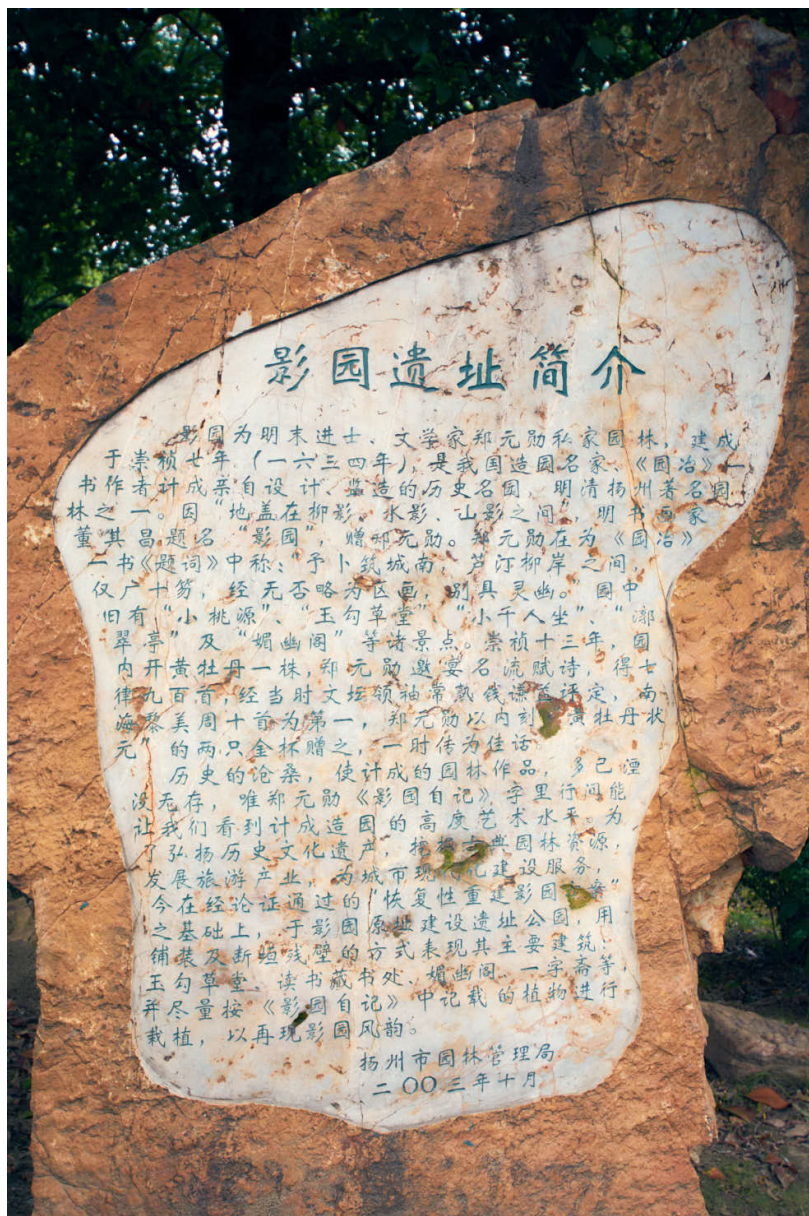 影园遗址简介
影园为明末进士、文学家郑元勋私家园林，建成
于崇祯七年（一六三四年），是我国造园名家、《园冶》一
书作者计成亲自设计、监造的历史名园，明清扬州著名园
林之一。因“地盖在柳影、水影、山影之间”，明书画家
董其昌题名“影园”，赠郑元勋。郑元勋在为《园冶》
一书《题词》中称：“予卜筑城南，芦汀柳岸之间，
仅广十笏，经无否略为区画，别具灵幽。”园中
旧有“小桃源”、“玉勾草堂”、“小千人坐”、“漷
翠亭”及“媚幽阁”等诸景点。崇祯十三年，园
内开黄牡丹一株，郑元勋邀宴名流赋诗，得七
律九百首，经当时文坛领袖常熟钱谦益评定，南
海黎美周十首为第一，郑元勋以内刻“黄牡丹状
元”的两只金杯赠之，一时传为佳话。
历史的沧桑，使计成的园林作品，多已湮
没无存，唯郑元勋《影园自记》字里行间能
让我们看到计成造园的高度艺术水平。为
了弘扬历史文化遗产，挖掘古典园林资源，
发展旅游产业，为城市现代化建设服务，
今在经论证通过的“恢复性重建影园方案”
之基础上，于影园原址建设遗址公园，用
铺装及断垣残壁的方式表现其主要建筑：
玉勾草堂、读书藏书处、媚幽阁、一字斋等，
并尽量按《影园自记》中记载的植物进行
栽植，以再现影园风韵。
扬州市园林管理局
二〇〇三年十月